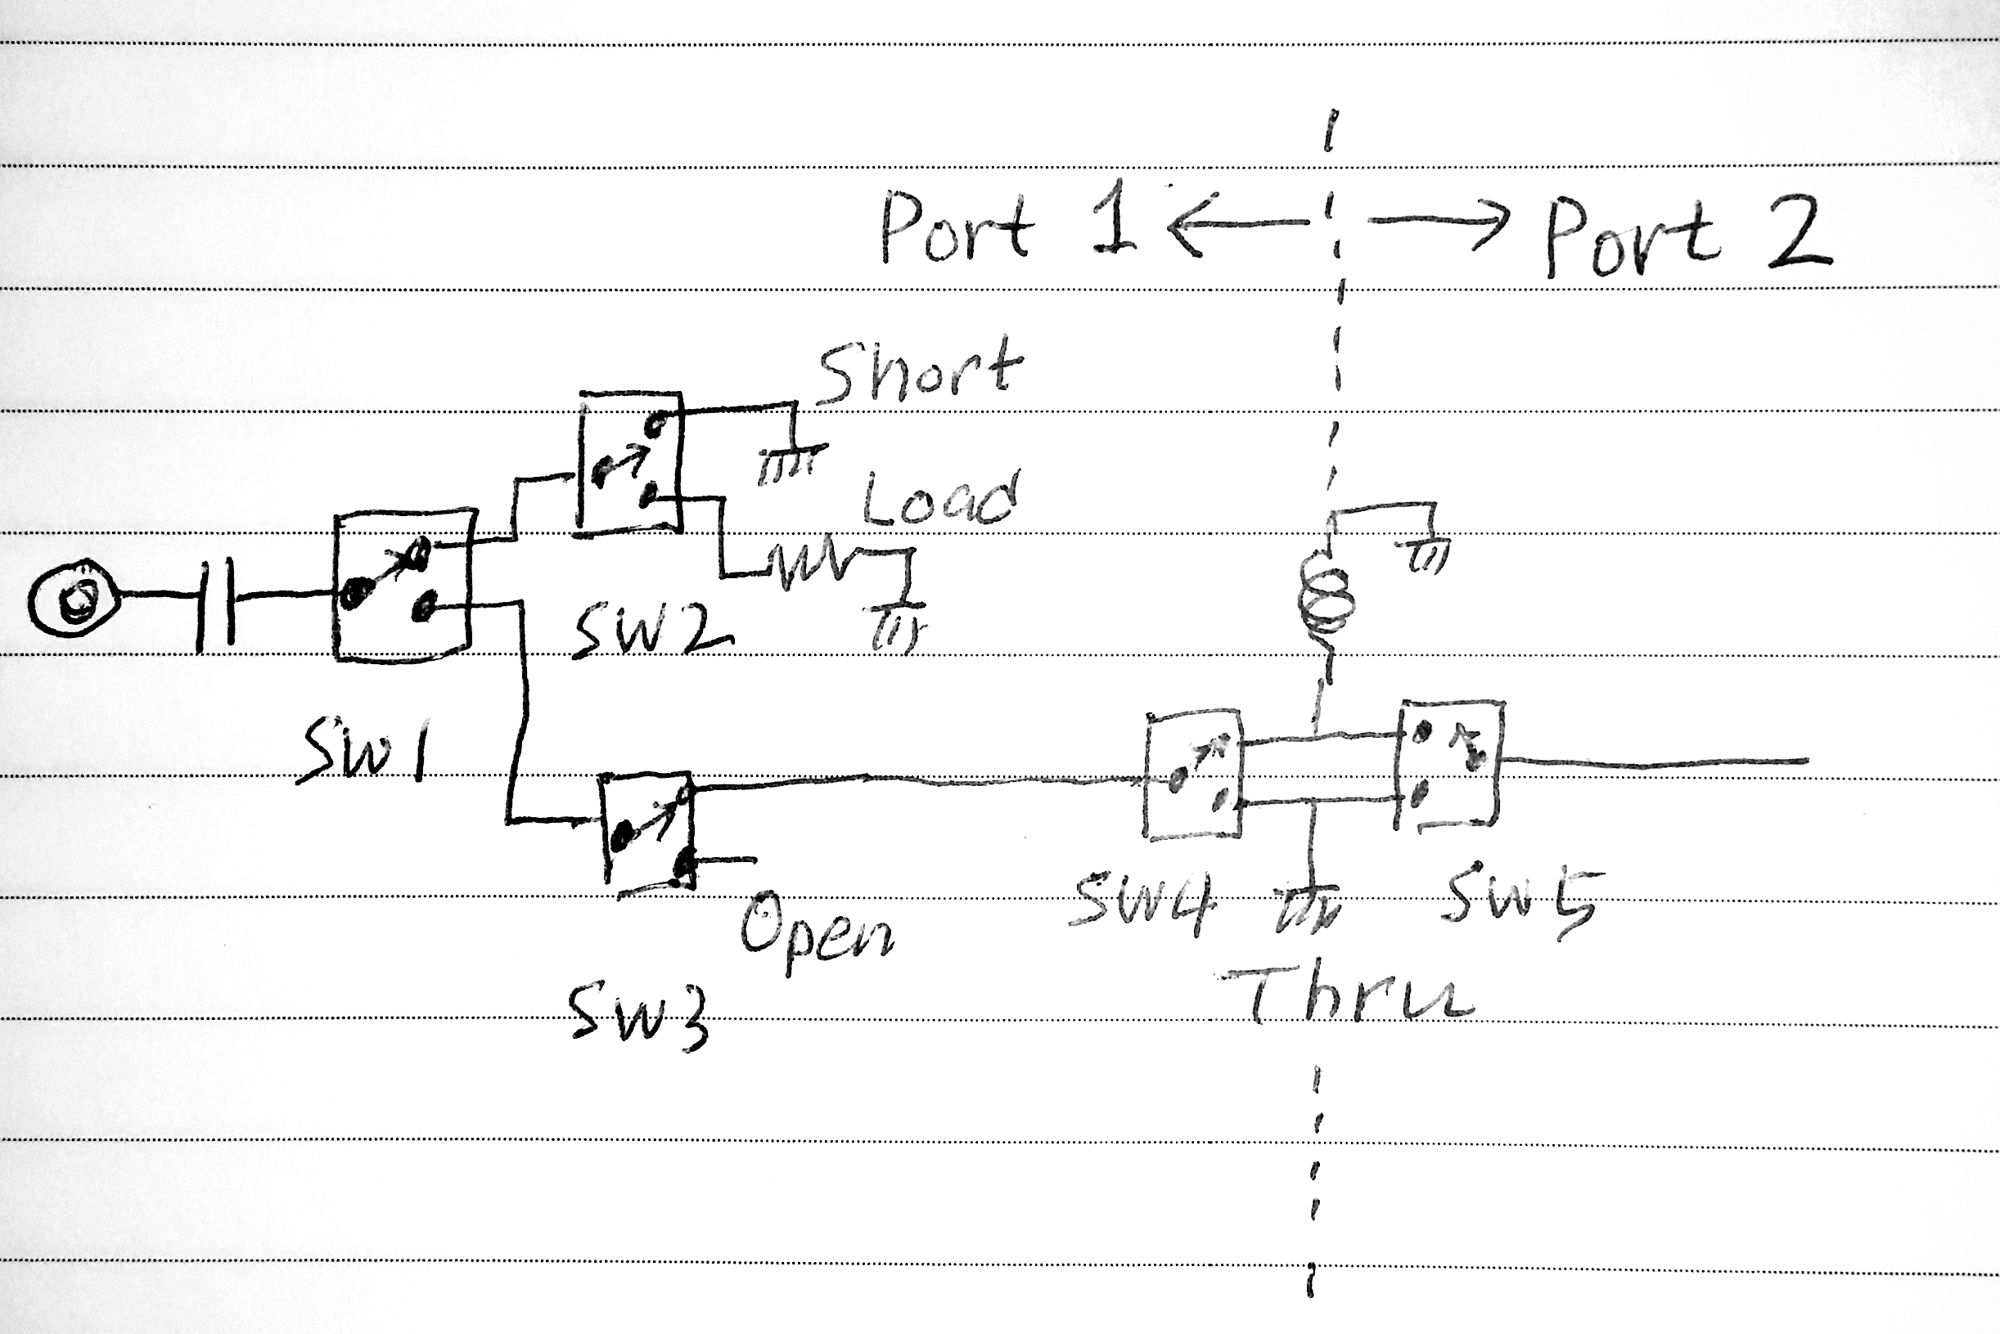 Port 1
Port 2
Short
Load
SW2
SW1
SW4
SW5
Open
Thru
SW3